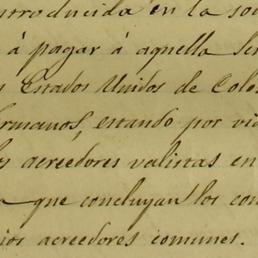 ntroducida en la so
á pagar á aquella Se
s Estados Unidos de Colo
rmanos, estando por vi
s acreedores valistas en
a que concluyan los con
ios acreedores comunes.